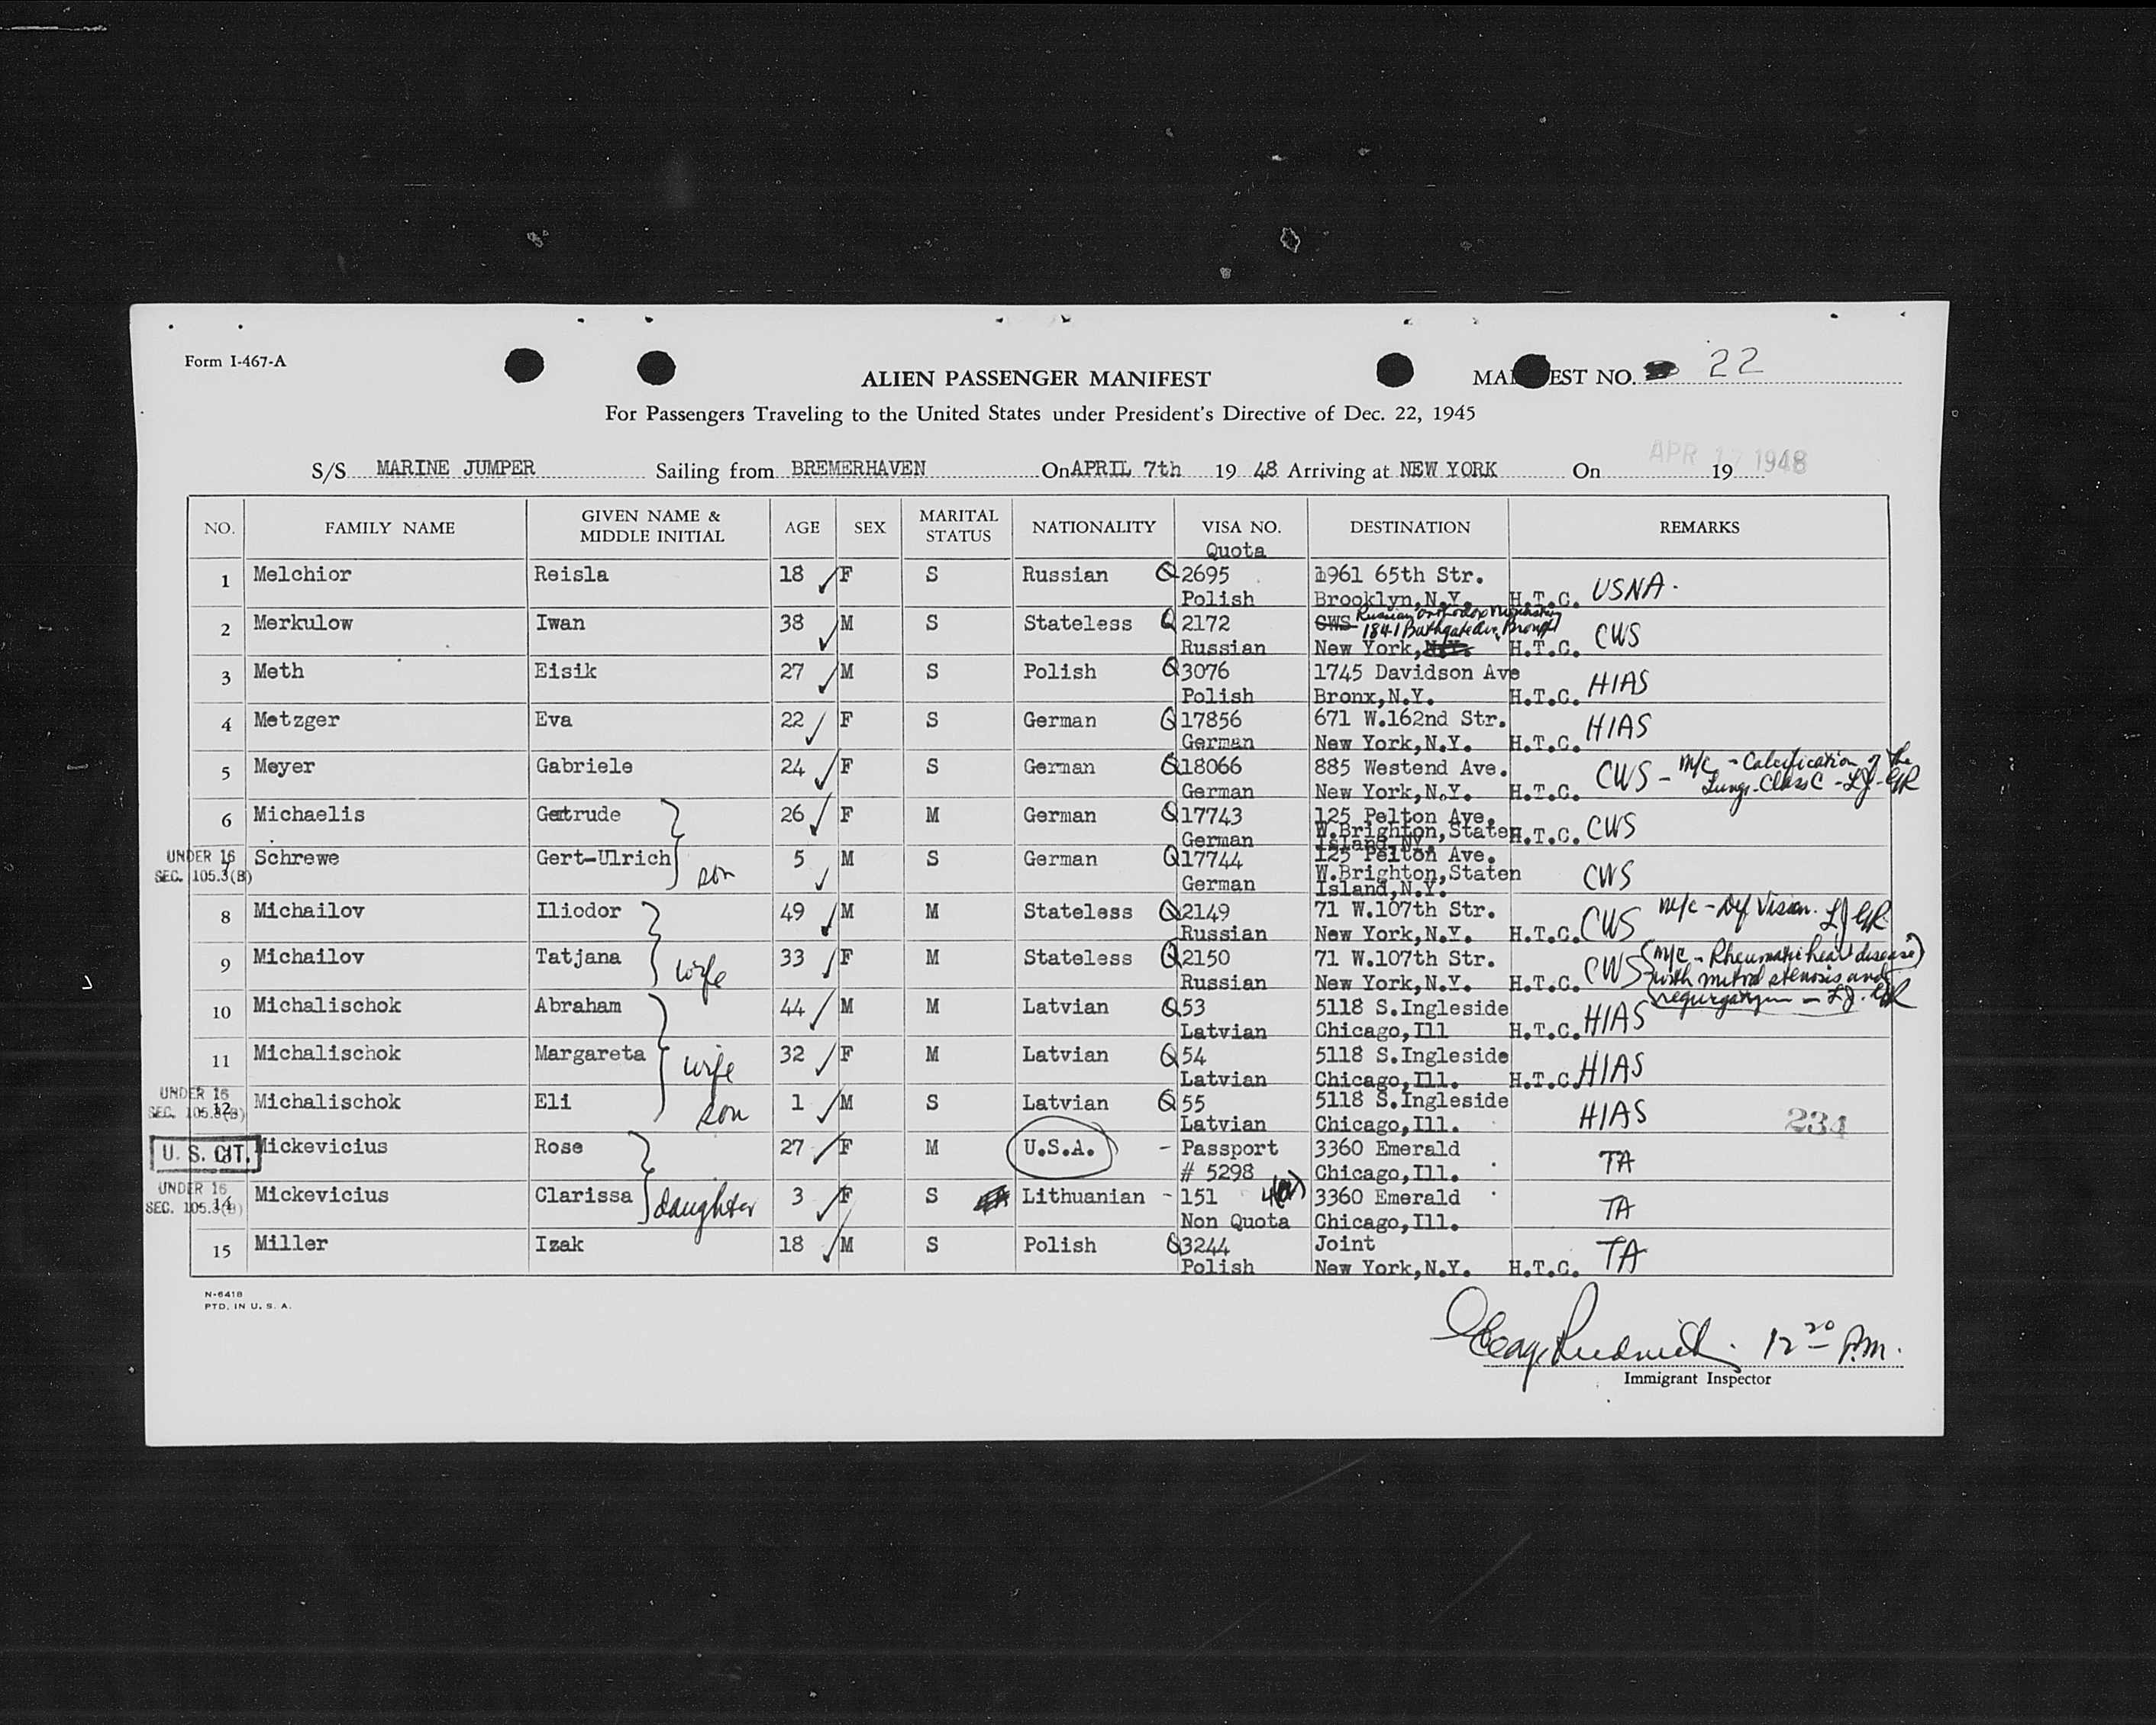 Form I-467-A
ALIEN PASSENGER MANIFEST
MANIFEST NO. 22
For Passengers Traveling to the United States under President's Directive of Dec. 22, 1945
S/S MARINE JUMPER Sailing from BREMERHAVEN On APRIL 7th 19 48 Arriving at NEW YORK On APR 17 1948 19
NO. FAMILY NAME GIVEN NAME & MIDDLE INITIAL AGE SEX MARITAL STATUS NATIONALITY VISA NO. DESTINATION REMARKS
Quota
1 Melchior Reisla 18 ✓ F S Russian Q 2695 1961 65th Str.
Polish Brooklyn,N.Y. H.T.C. USNA.
2 Merkulow Iwan 38 ✓ M S Stateless Q 2172 CWS Russian Orthodox
1841 Bathgate Ave, Bronx
Russian New York,N.Y. H.T.C. CWS
3 Meth Eisik 27 ✓ M S Polish Q 3076 1745 Davidson Ave
Polish Bronx,N.Y. H.T.C. HIAS
4 Metzger Eva 22 ✓ F S German Q 17856 671 W.162nd Str.
German New York,N.Y. H.T.C. HIAS
5 Meyer Gabriele 24 ✓ F S German Q 18066 885 Westend Ave.
German New York,N.Y. H.T.C. CWS - M/C - Calcification of the
Lungs - Class C - LJ - GR
6 Michaelis Gertrude 26 ✓ F M German Q 17743 125 Pelton Ave.
German W.Brighton,Staten H.T.C. CWS
Island,NY.
UNDER 16
SEC. 105.3(B)
7 Schrewe Gert-Ulrich son 5 ✓ M S German Q 17744 125 Pelton Ave.
German W.Brighton,Staten CWS
Island,N.Y.
8 Michailov Iliodor 49 ✓ M M Stateless Q 2149 71 W.107th Str.
Russian New York,N.Y. H.T.C. CWS M/C - Def Vision. LJ GR
9 Michailov Tatjana wife 33 ✓ F M Stateless Q 2150 71 W.107th Str.
Russian New York,N.Y. H.T.C. CWS (M/C - Rheumatic heart disease)
with mitral stenosis and
regurgation - LJ. GR
10 Michalischok Abraham 44 ✓ M M Latvian Q 53 5118 S.Ingleside
Latvian Chicago,Ill H.T.C. HIAS
11 Michalischok Margareta wife 32 ✓ F M Latvian Q 54 5118 S.Ingleside
Latvian Chicago,Ill. H.T.C. HIAS
UNDER 16
SEC. 105.3(B)
12 Michalischok Eli son 1 ✓ M S Latvian Q 55 5118 S.Ingleside
Latvian Chicago,Ill. HIAS 234
U. S. CIT.
Mickevicius Rose 27 ✓ F M U.S.A. - Passport 3360 Emerald
# 5298 Chicago,Ill. TA
UNDER 16
SEC. 105.3(B)
14 Mickevicius Clarissa daughter 3 ✓ F S Lithuanian - 151 4(a) 3360 Emerald
Non Quota Chicago,Ill. TA
15 Miller Izak 18 ✓ M S Polish Q 3244 Joint
Polish New York,N.Y. H.T.C. TA
N-6418
PTD. IN U. S. A.
12 20 P.m.
Immigrant Inspector